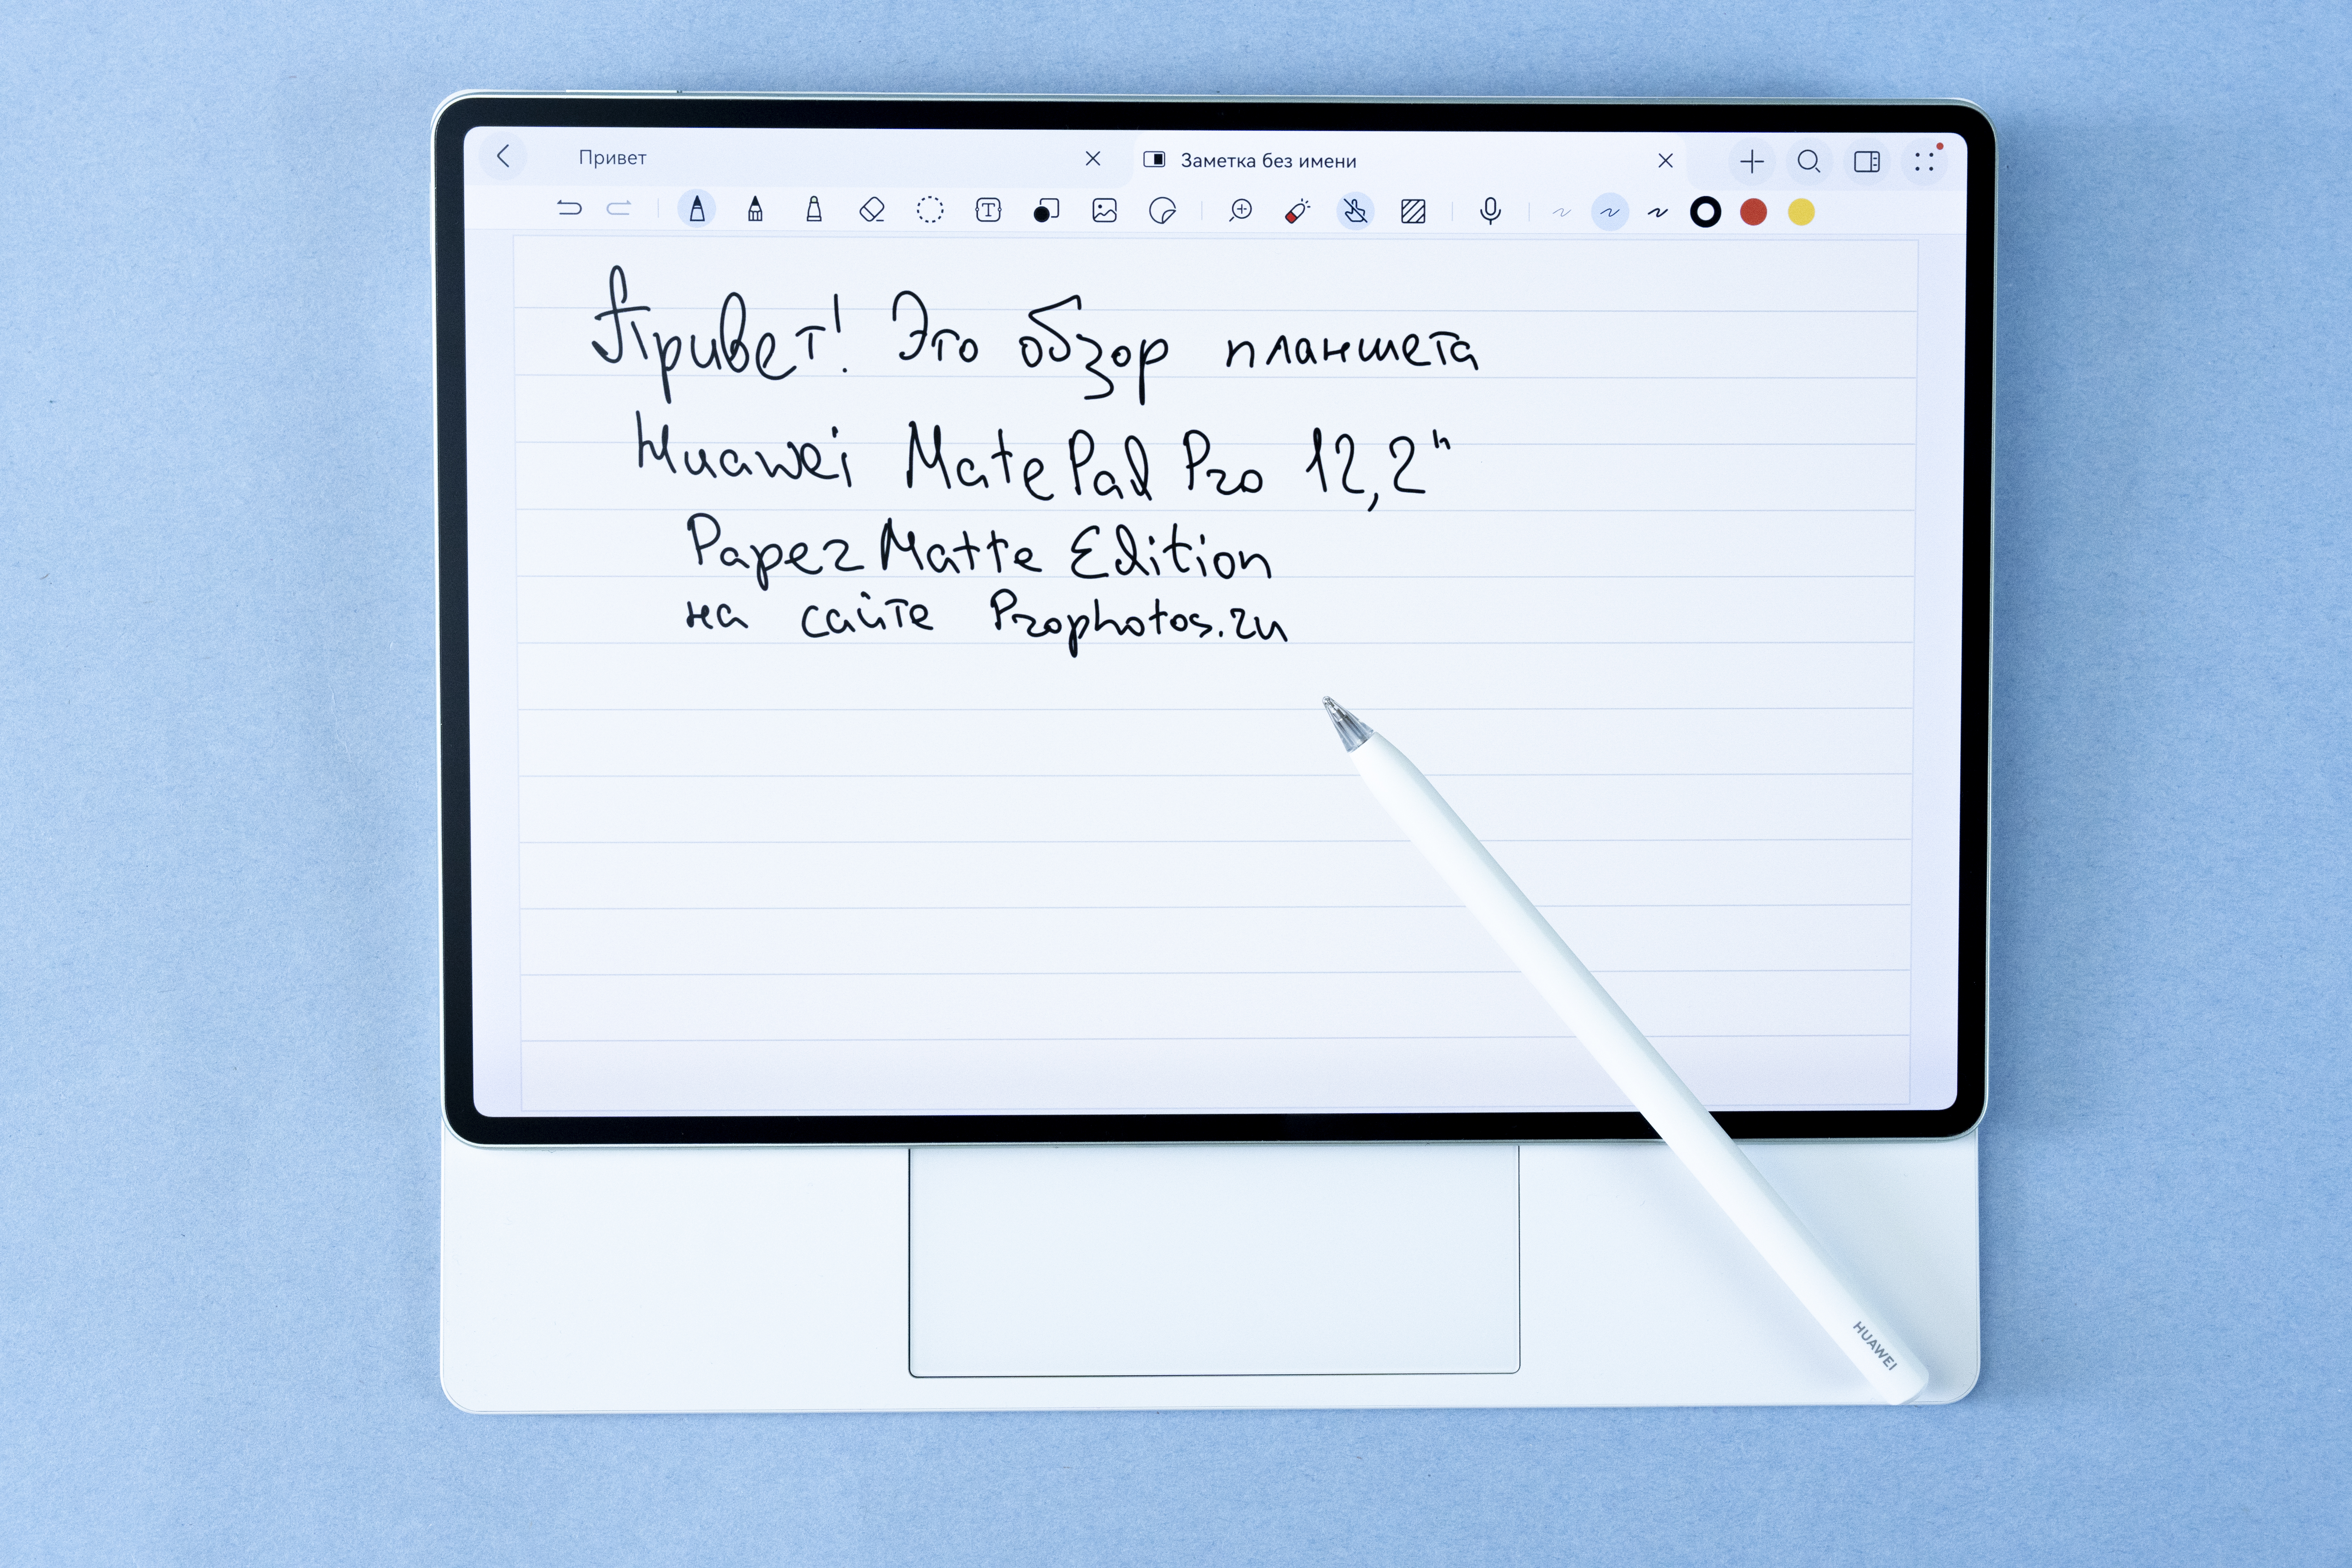 Привет
Заметка без имени
Привет! Это обзор планшета
Huawei MatePad Pro 12,2"
PaperMatte Edition
на сайте Prophotos.ru
HUAWEI